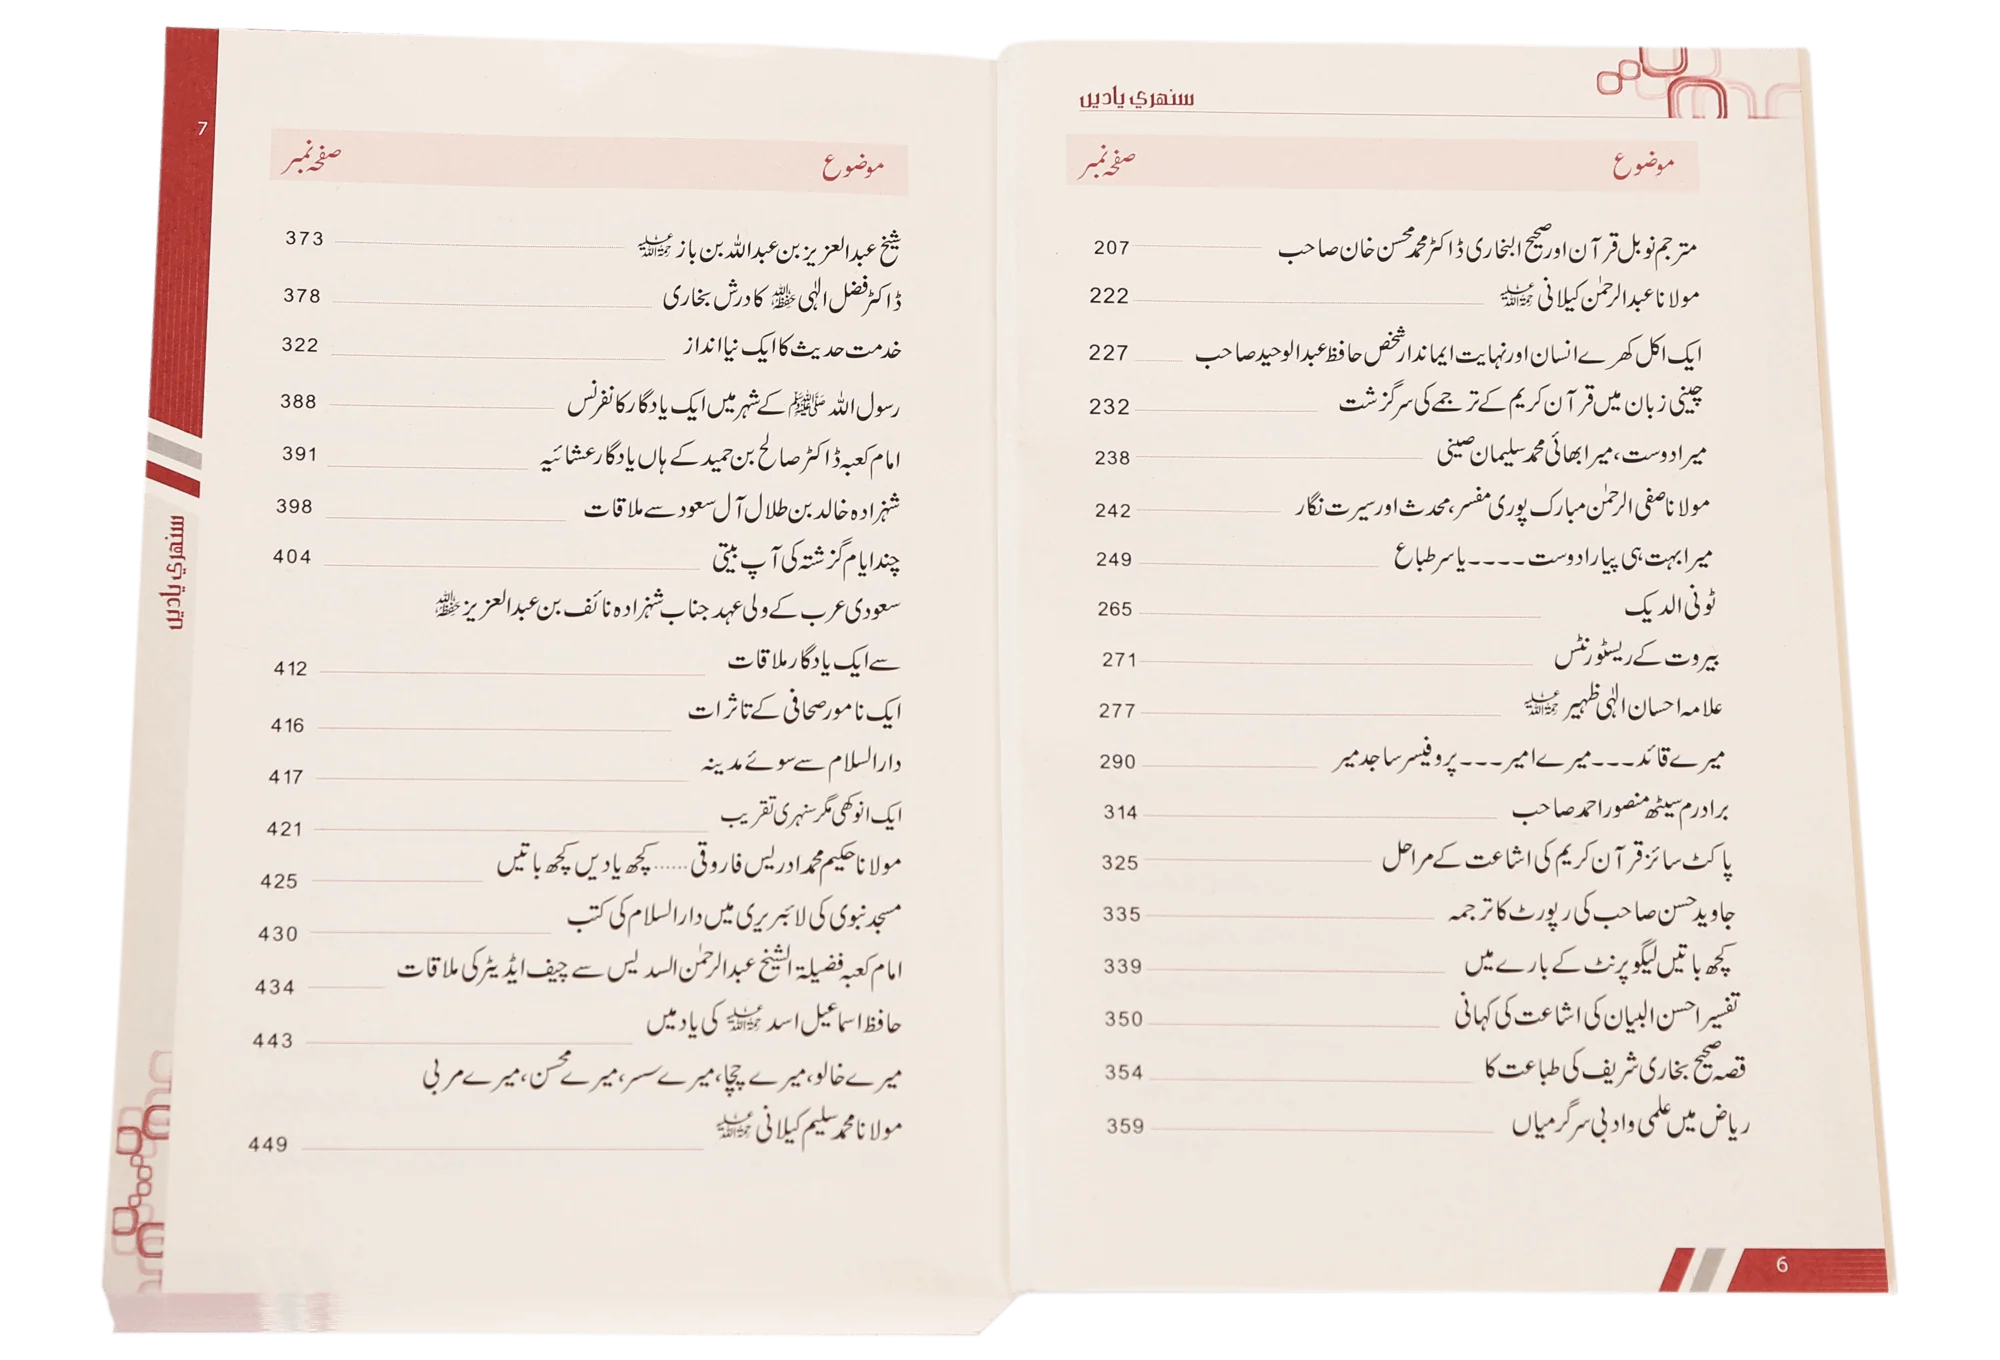 سنهري ياديں
موضوع صفحہ نمبر
مترجم نوبل قرآن اور صحیح البخاری ڈاکٹر محمد محسن خان صاحب 207
مولانا عبدالرحمٰن کیلانی رحمۃ اللہ علیہ 222
ایک اکل کھرے انسان اور نہایت ایماندار شخص حافظ عبدالوحید صاحب 227
چینی زبان میں قرآن کریم کے ترجمے کی سرگزشت 232
میرا دوست، میرا بھائی محمد سلیمان صینی 238
مولانا صفی الرحمٰن مبارک پوری مفسر، محدث اور سیرت نگار 242
میرا بہت ہی پیارا دوست ---- یاسر طباع 249
ٹونی الدیک 265
بیروت کے ریسٹورنٹس 271
علامہ احسان الٰہی ظہیر رحمۃ اللہ علیہ 277
میرے قائد --- میرے امیر --- پروفیسر ساجد میر 290
برادرم سیٹھ منصور احمد صاحب 314
پاکٹ سائز قرآن کریم کی اشاعت کے مراحل 325
جاوید حسن صاحب کی رپورٹ کا ترجمہ 335
کچھ باتیں لیگو پرنٹ کے بارے میں 339
تفسیر احسن البیان کی اشاعت کی کہانی 350
قصہ صحیح بخاری شریف کی طباعت کا 354
ریاض میں علمی و ادبی سرگرمیاں 359
6
7
سنهري ياديں
موضوع صفحہ نمبر
شیخ عبدالعزیز بن عبداللہ بن باز رحمۃ اللہ علیہ 373
ڈاکٹر فضل الٰہی حفظہ اللہ کا درسِ بخاری 378
خدمت حدیث کا ایک نیا انداز 322
رسول اللہ ﷺ کے شہر میں ایک یادگار کانفرنس 388
امام کعبہ ڈاکٹر صالح بن حمید کے ہاں یادگار عشائیہ 391
شہزادہ خالد بن طلال آل سعود سے ملاقات 398
چند ایام گزشتہ کی آپ بیتی 404
سعودی عرب کے ولی عہد جناب شہزادہ نائف بن عبدالعزیز حفظہ اللہ
سے ایک یادگار ملاقات 412
ایک نامور صحافی کے تاثرات 416
دارالسلام سے سوئے مدینہ 417
ایک انوکھی مگر سنہری تقریب 421
مولانا حکیم محمد ادریس فاروقی ...... کچھ یادیں کچھ باتیں 425
مسجد نبوی کی لائبریری میں دارالسلام کی کتب 430
امام کعبہ فضیلۃ الشیخ عبدالرحمٰن السدیس سے چیف ایڈیٹر کی ملاقات 434
حافظ اسماعیل اسد رحمۃ اللہ علیہ کی یاد میں 443
میرے خالو، میرے چچا، میرے سسر، میرے محسن، میرے مربی
مولانا محمد سلیم کیلانی رحمۃ اللہ علیہ 449